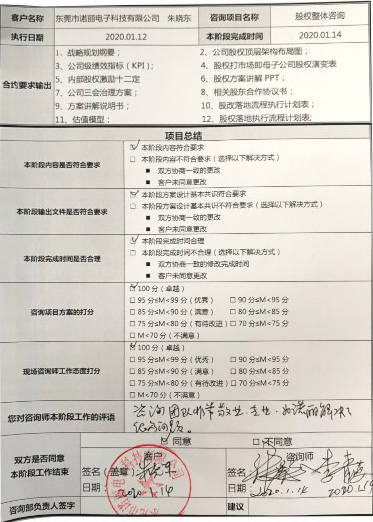 客户名称 东莞市诺丽电子科技有限公司 朱晓东 咨询项目名称 股权整体咨询
执行日期 2020.01.12 本阶段完成时间 2020.01.14
合约要求输出
1、战略规划纲要； 2、公司股权顶层架构布局图；
3、公司级绩效指标（KPI）； 4、股权打市场即母子公司股权演变表
5、内部股权激励十二定 6、股权方案讲解 PPT；
7、公司三会治理方案； 8、相关股东合作协议书；
9、方案讲解说明书； 10、股改落地执行流程计划表；
11、估值模型； 12、股权落地执行流程计划表；
项目总结
本阶段内容是否符合要求
☑ 本阶段内容符合要求
□ 本阶段内容不符合要求（选择以下解决方式）
■ 双方协商一致的更改
■ 客户未同意更改
本阶段输出文件是否符合要求
☑ 本阶段方案设计基本共识符合要求
□ 本阶段方案设计基本共识不符合要求（选择以下解决方式）
■ 双方协商一致的更改
■ 客户未同意更改
本阶段完成时间是否合理
☑ 本阶段完成时间合理
□ 本阶段完成时间不合理（选择以下解决方式）
■ 双方协商一致的修改完成时间
■ 客户未同意更改
咨询项目方案的打分
☑ 100 分（卓越）
□ 95 分≤M<99 分（优秀） □ 90 分≤M<95 分
□ 85 分≤M<90 分（满意） □ 80 分≤M<85 分
□ 75 分≤M<80 分（有待改进） □ 70 分≤M<75 分
□ M<70 分（不满意）
现场咨询师工作态度打分
☑ 100 分（卓越）
□ 95 分≤M<99 分（优秀） □ 90 分≤M<95 分
□ 85 分≤M<90 分（满意） □ 80 分≤M<85 分
□ 75 分≤M<80 分（有待改进） □ 70 分≤M<75 分
□ M<70 分（不满意）
您对咨询师本阶段工作的评语
咨询团队非常专业
双方是否同意本阶段工作结束
☑ 同意 □不同意
客户 咨询师
签名（盖章）： 签名：
日期： 2020.1.14 日期： 2020.1.14 2020.1.14
咨询部负责人签字 建议